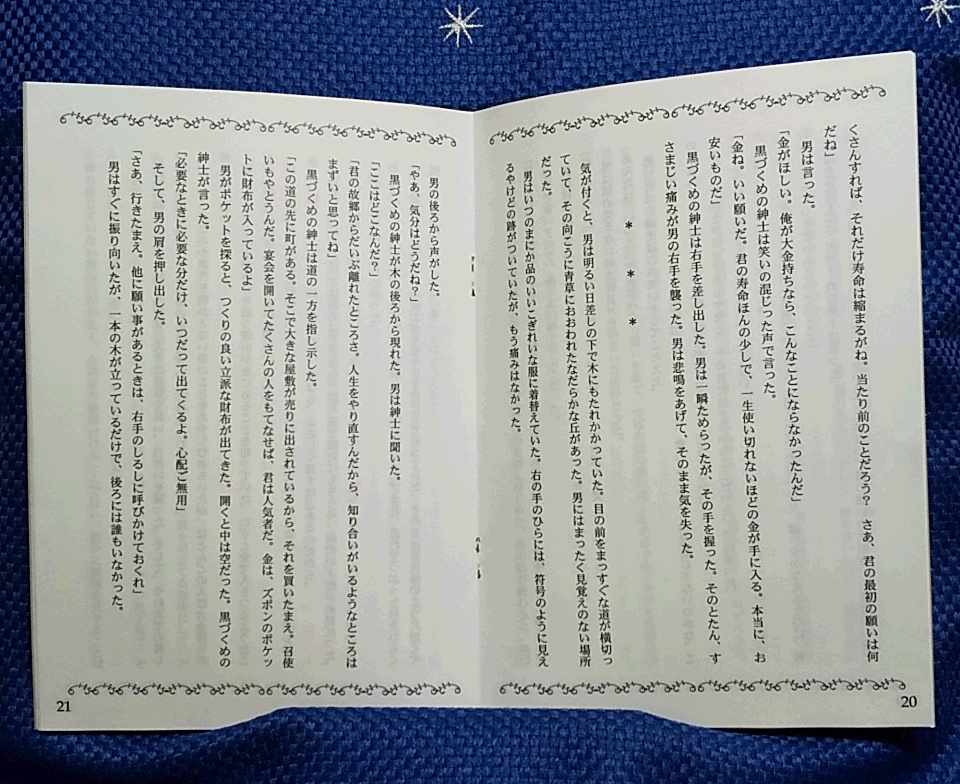 くさんすれば、それだけ寿命は縮まるがね。当たり前のことだろう？　さあ、君の最初の願いは何
だね」
　男は言った。
「金がほしい。俺が大金持ちなら、こんなことにならなかったんだ」
　黒づくめの紳士は笑いの混じった声で言った。
「金ね。いい願いだ。君の寿命ほんの少しで、一生使い切れないほどの金が手に入る。本当に、お
安いものだ」
　黒づくめの紳士は右手を差し出した。男は一瞬ためらったが、その手を握った。そのとたん、す
さまじい痛みが男の右手を襲った。男は悲鳴をあげて、そのまま気を失った。
＊　＊　＊
　気が付くと、男は明るい日差しの下で木にもたれかかっていた。目の前をまっすぐな道が横切っ
ていて、その向こうに青草におおわれたなだらかな丘があった。男にはまったく見覚えのない場所
だった。
　男はいつのまにか品のいいこぎれいな服に着替えていた。右の手のひらには、符号のように見え
るやけどの跡がついていたが、もう痛みはなかった。
20
　男の後ろから声がした。
「やあ、気分はどうだね？」
　黒づくめの紳士が木の後ろから現れた。男は紳士に聞いた。
「ここはどこなんだ？」
「君の故郷からだいぶ離れたところさ。人生をやり直すんだから、知り合いがいるようなところは
まずいと思ってね」
　黒づくめの紳士は道の一方を指し示した。
「この道の先に町がある。そこで大きな屋敷が売りに出されているから、それを買いたまえ。召使
いもやとうんだ。宴会を開いてたくさんの人をもてなせば、君は人気者だ。金は、ズボンのポケッ
トに財布が入っているよ」
　男がポケットを探ると、つくりの良い立派な財布が出てきた。開くと中は空だった。黒づくめの
紳士が言った。
「必要なときに必要な分だけ、いつだって出てくるよ。心配ご無用」
　そして、男の肩を押し出した。
「さあ、行きたまえ。他に願い事があるときは、右手のしるしに呼びかけておくれ」
　男はすぐに振り向いたが、一本の木が立っているだけで、後ろには誰もいなかった。
21